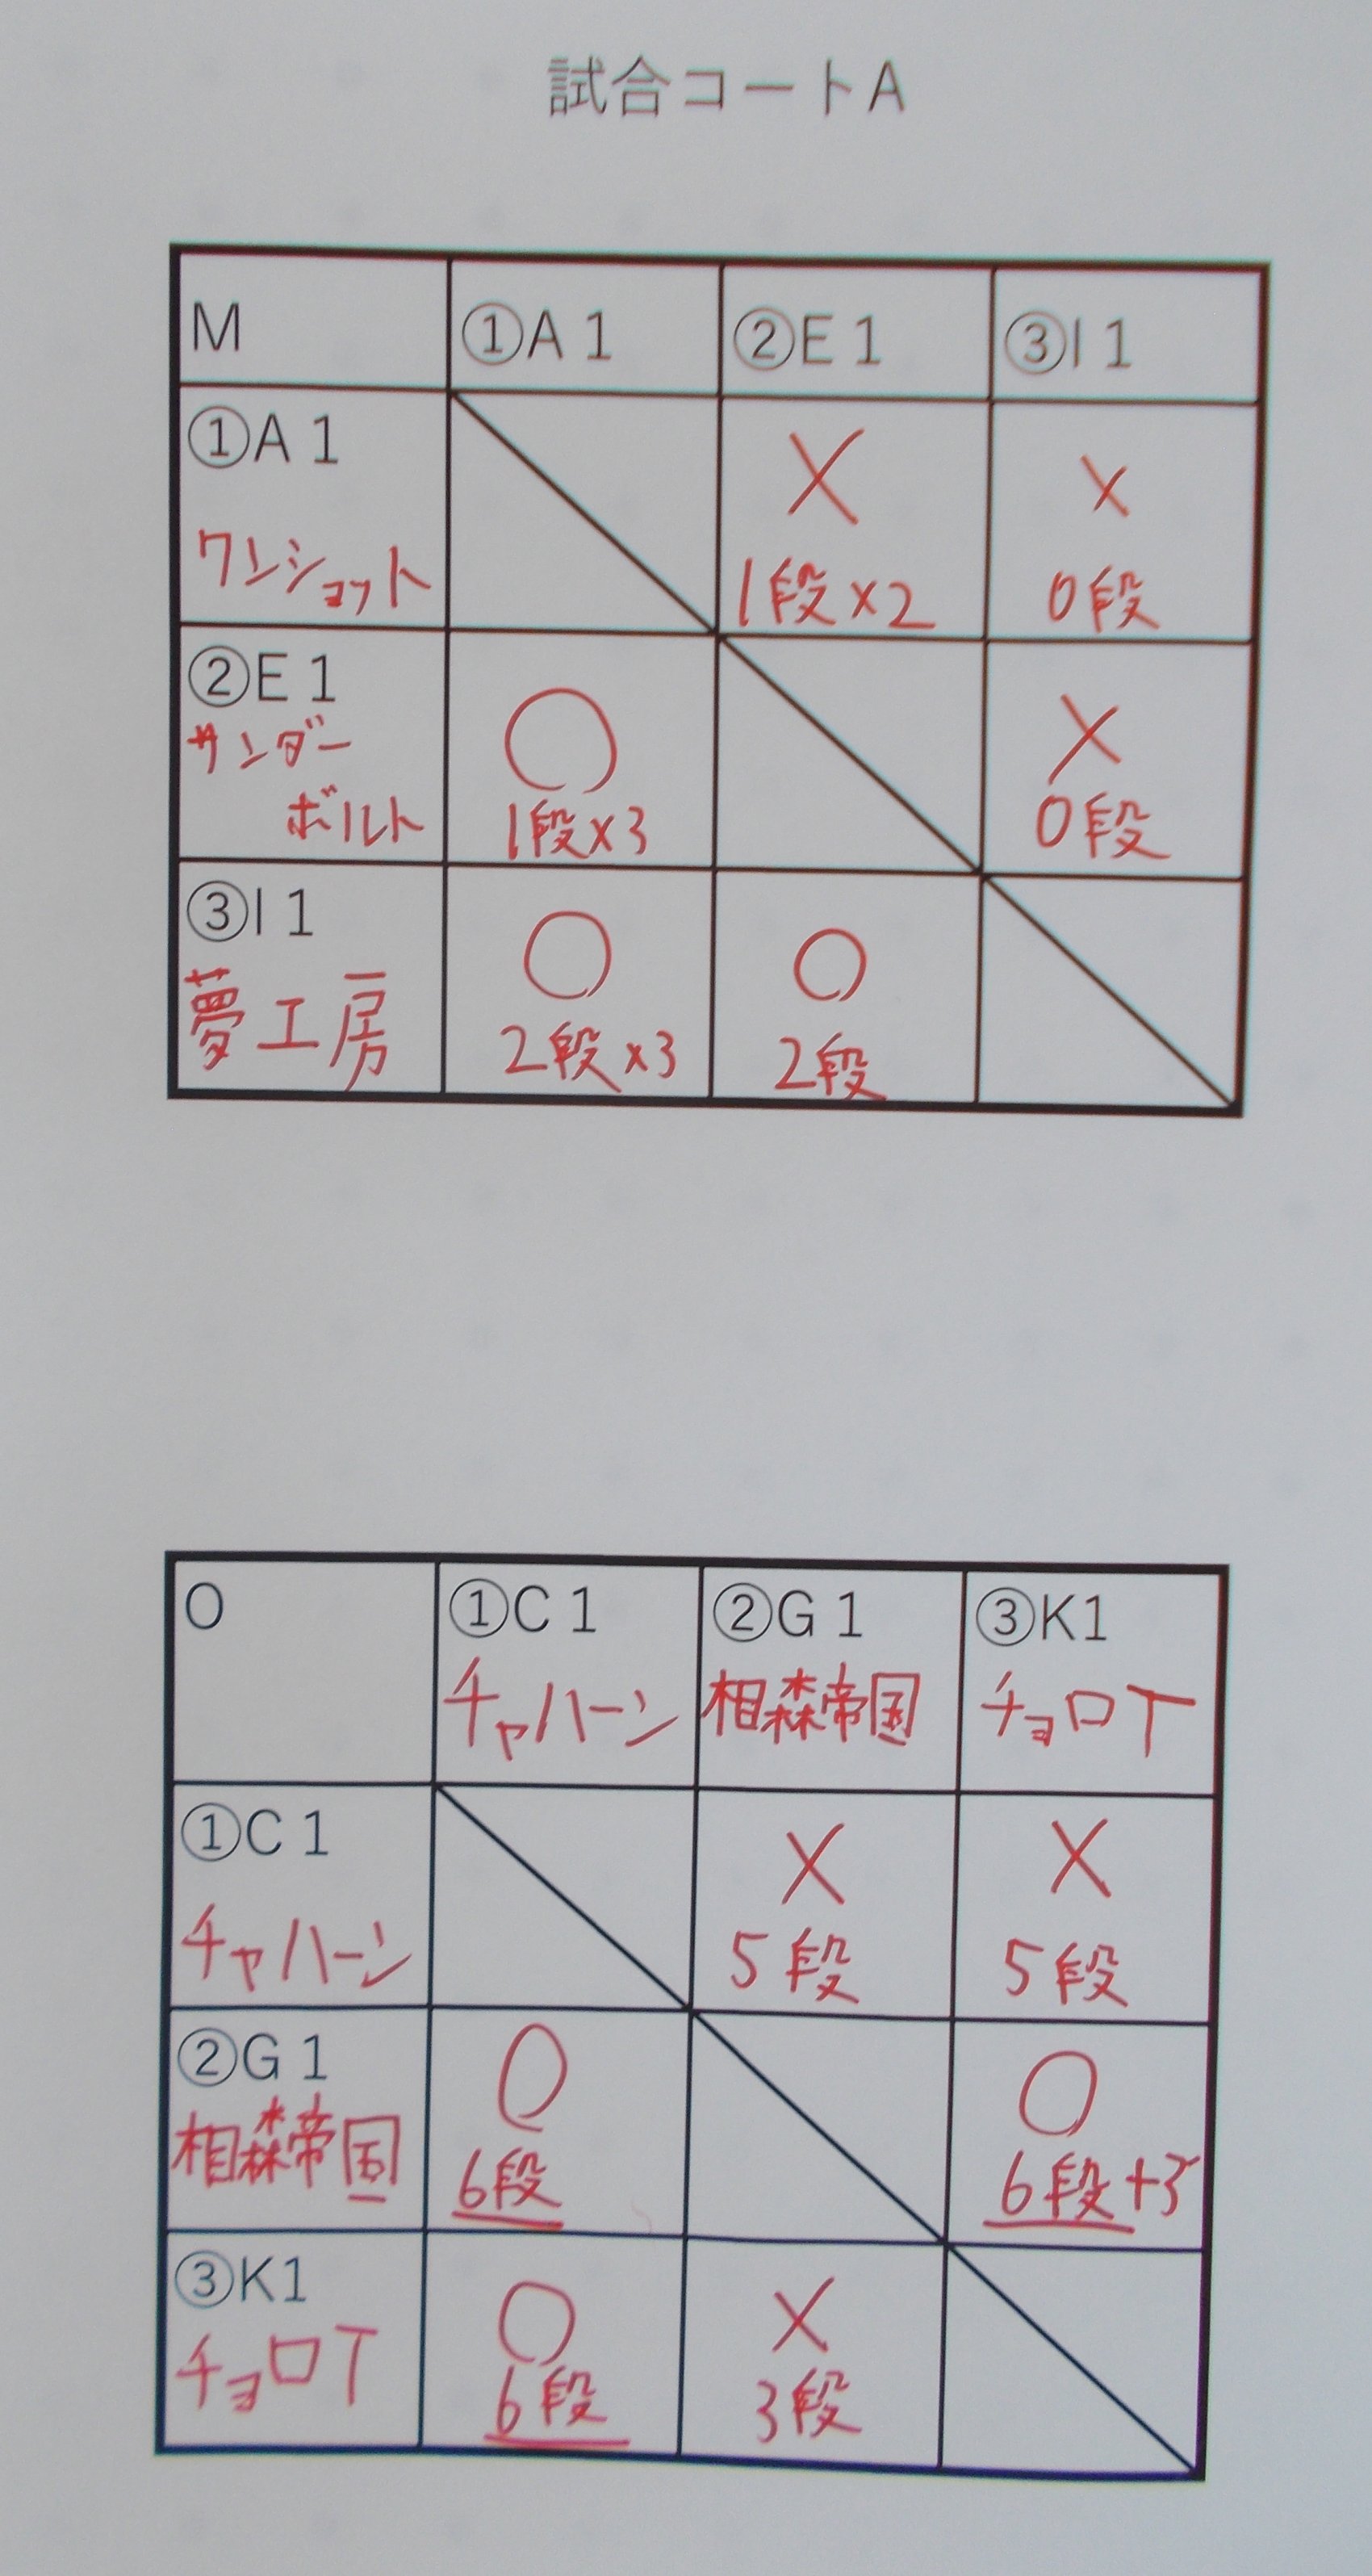 試合コートA
M ①A1 ②E1 ③I1
①A1 × ×
ワンショット 1段×2 0段
②E1 ○ ×
サンダー
ボルト 1段×3 0段
③I1 ○ ○
夢工房 2段×3 2段
O ①C1 ②G1 ③K1
チャハーン 相森帝国 チョロT
①C1 × ×
チャハーン 5段 5段
②G1 ○ ○
相森帝国 6段 6段+3
③K1 ○ ×
チョロT 6段 3段